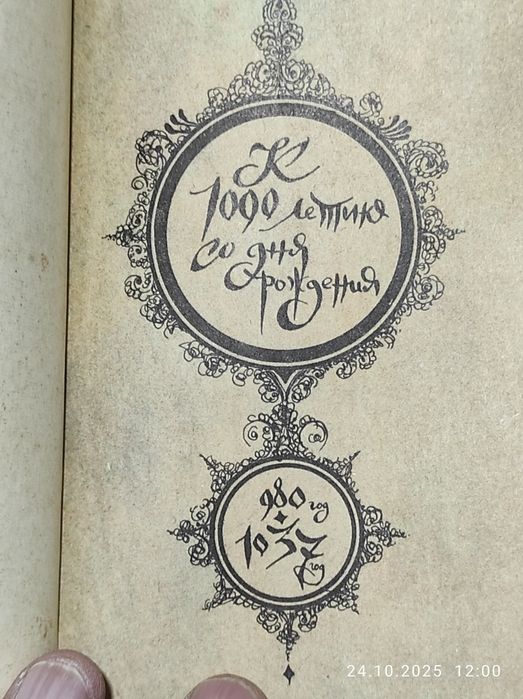 К
1000 летию
со дня
рождения
980 год
1037
год
24.10.2025 12:00